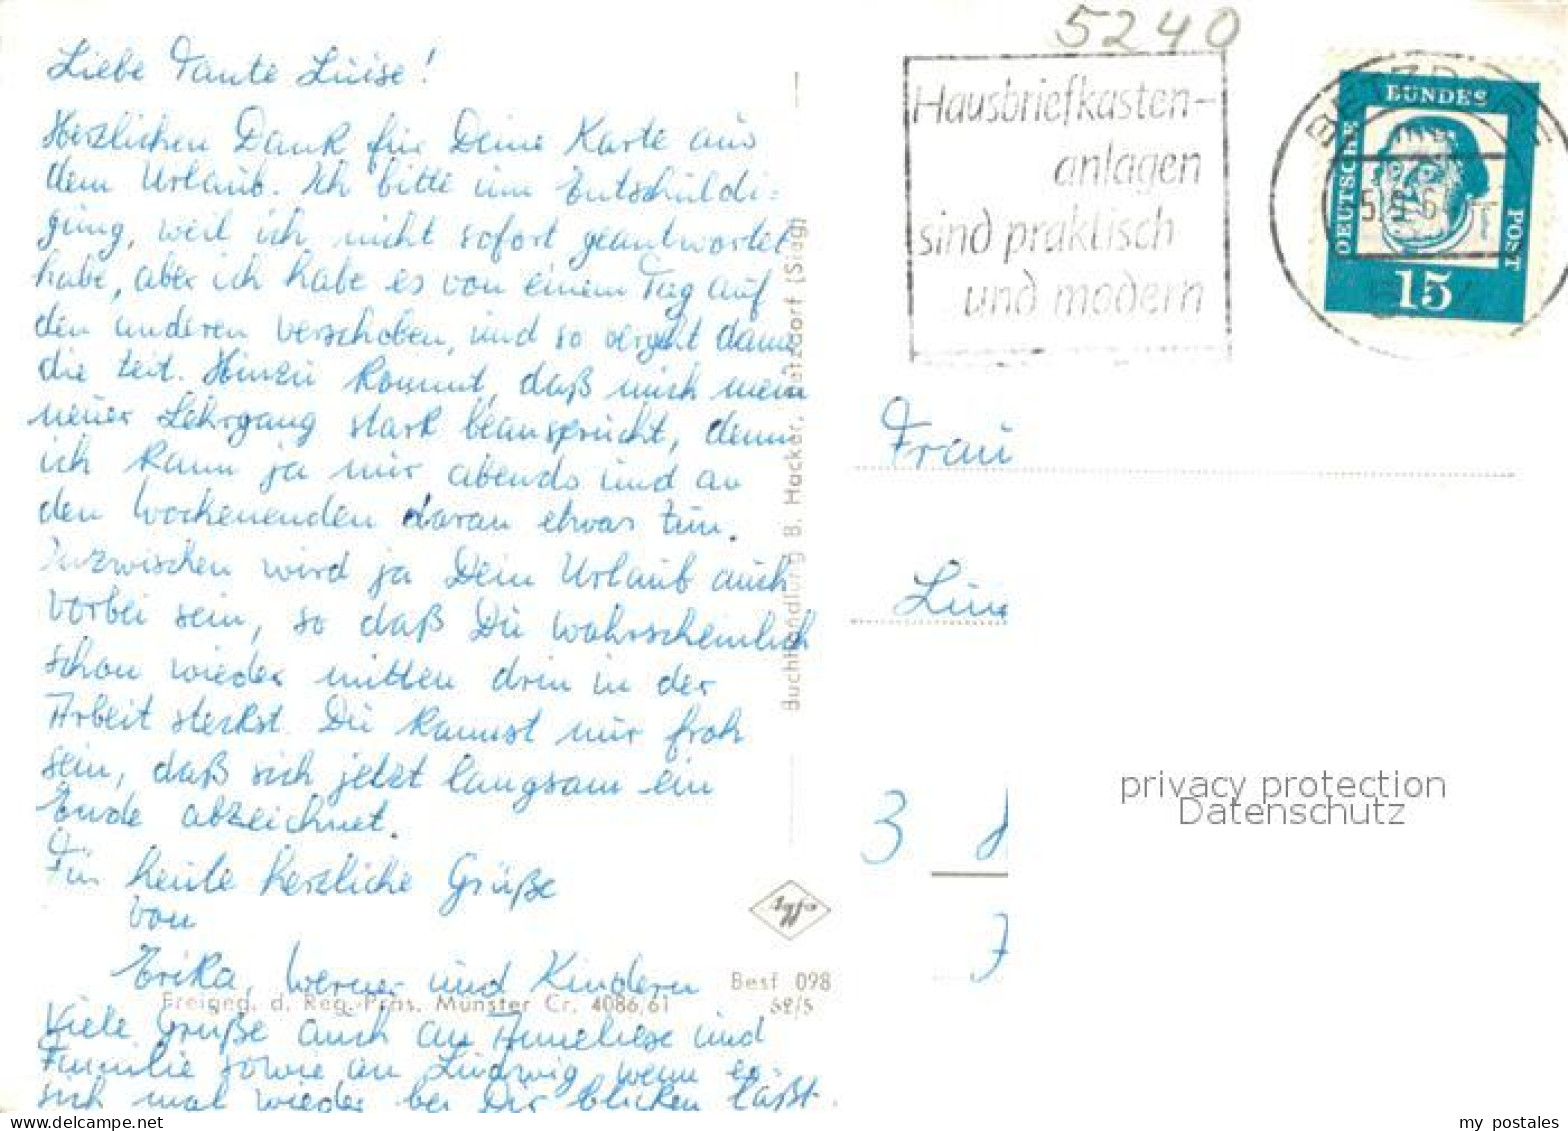 Liebe Tante Luise!
Herzlichen Dank für Deine Karte aus
dem Urlaub. Ich bitte um Entschuldi=
gung, weil ich nicht sofort geantwortet
habe, aber ich habe es von einem Tag auf
den anderen verschoben, und so vergeht dann
die Zeit. Hinzu kommt, daß mich mein
neuer Lehrgang stark beansprucht, denn
ich kann ja nur abends und an
den Wochenenden daran etwas tun.
Inzwischen wird ja Dein Urlaub auch
vorbei sein, so daß Du wahrscheinlich
schon wieder mitten drin in der
Arbeit steckst. Du kannst nur froh
sein, daß sich jetzt langsam ein
Ende abzeichnet.
Für heute herzliche Grüße
von
Erika, Werner und Kindern
Viele Grüße auch an Anneliese und
Familie sowie an Ludwig, wenn er
sich mal wieder bei Dir blicken läßt.
Freigeg. d. Reg.-Präs. Münster Cr. 4086/61
Best 098
52/5
Buchhandlung B. Hacker, Betzdorf (Sieg)
5240
Hausbriefkasten-
anlagen
sind praktisch
und modern
BETZDORF
DEUTSCHE
BUNDES
POST
15
Frau
3
privacy protection
Datenschutz
www.ansichtskarten-center.de
my postales